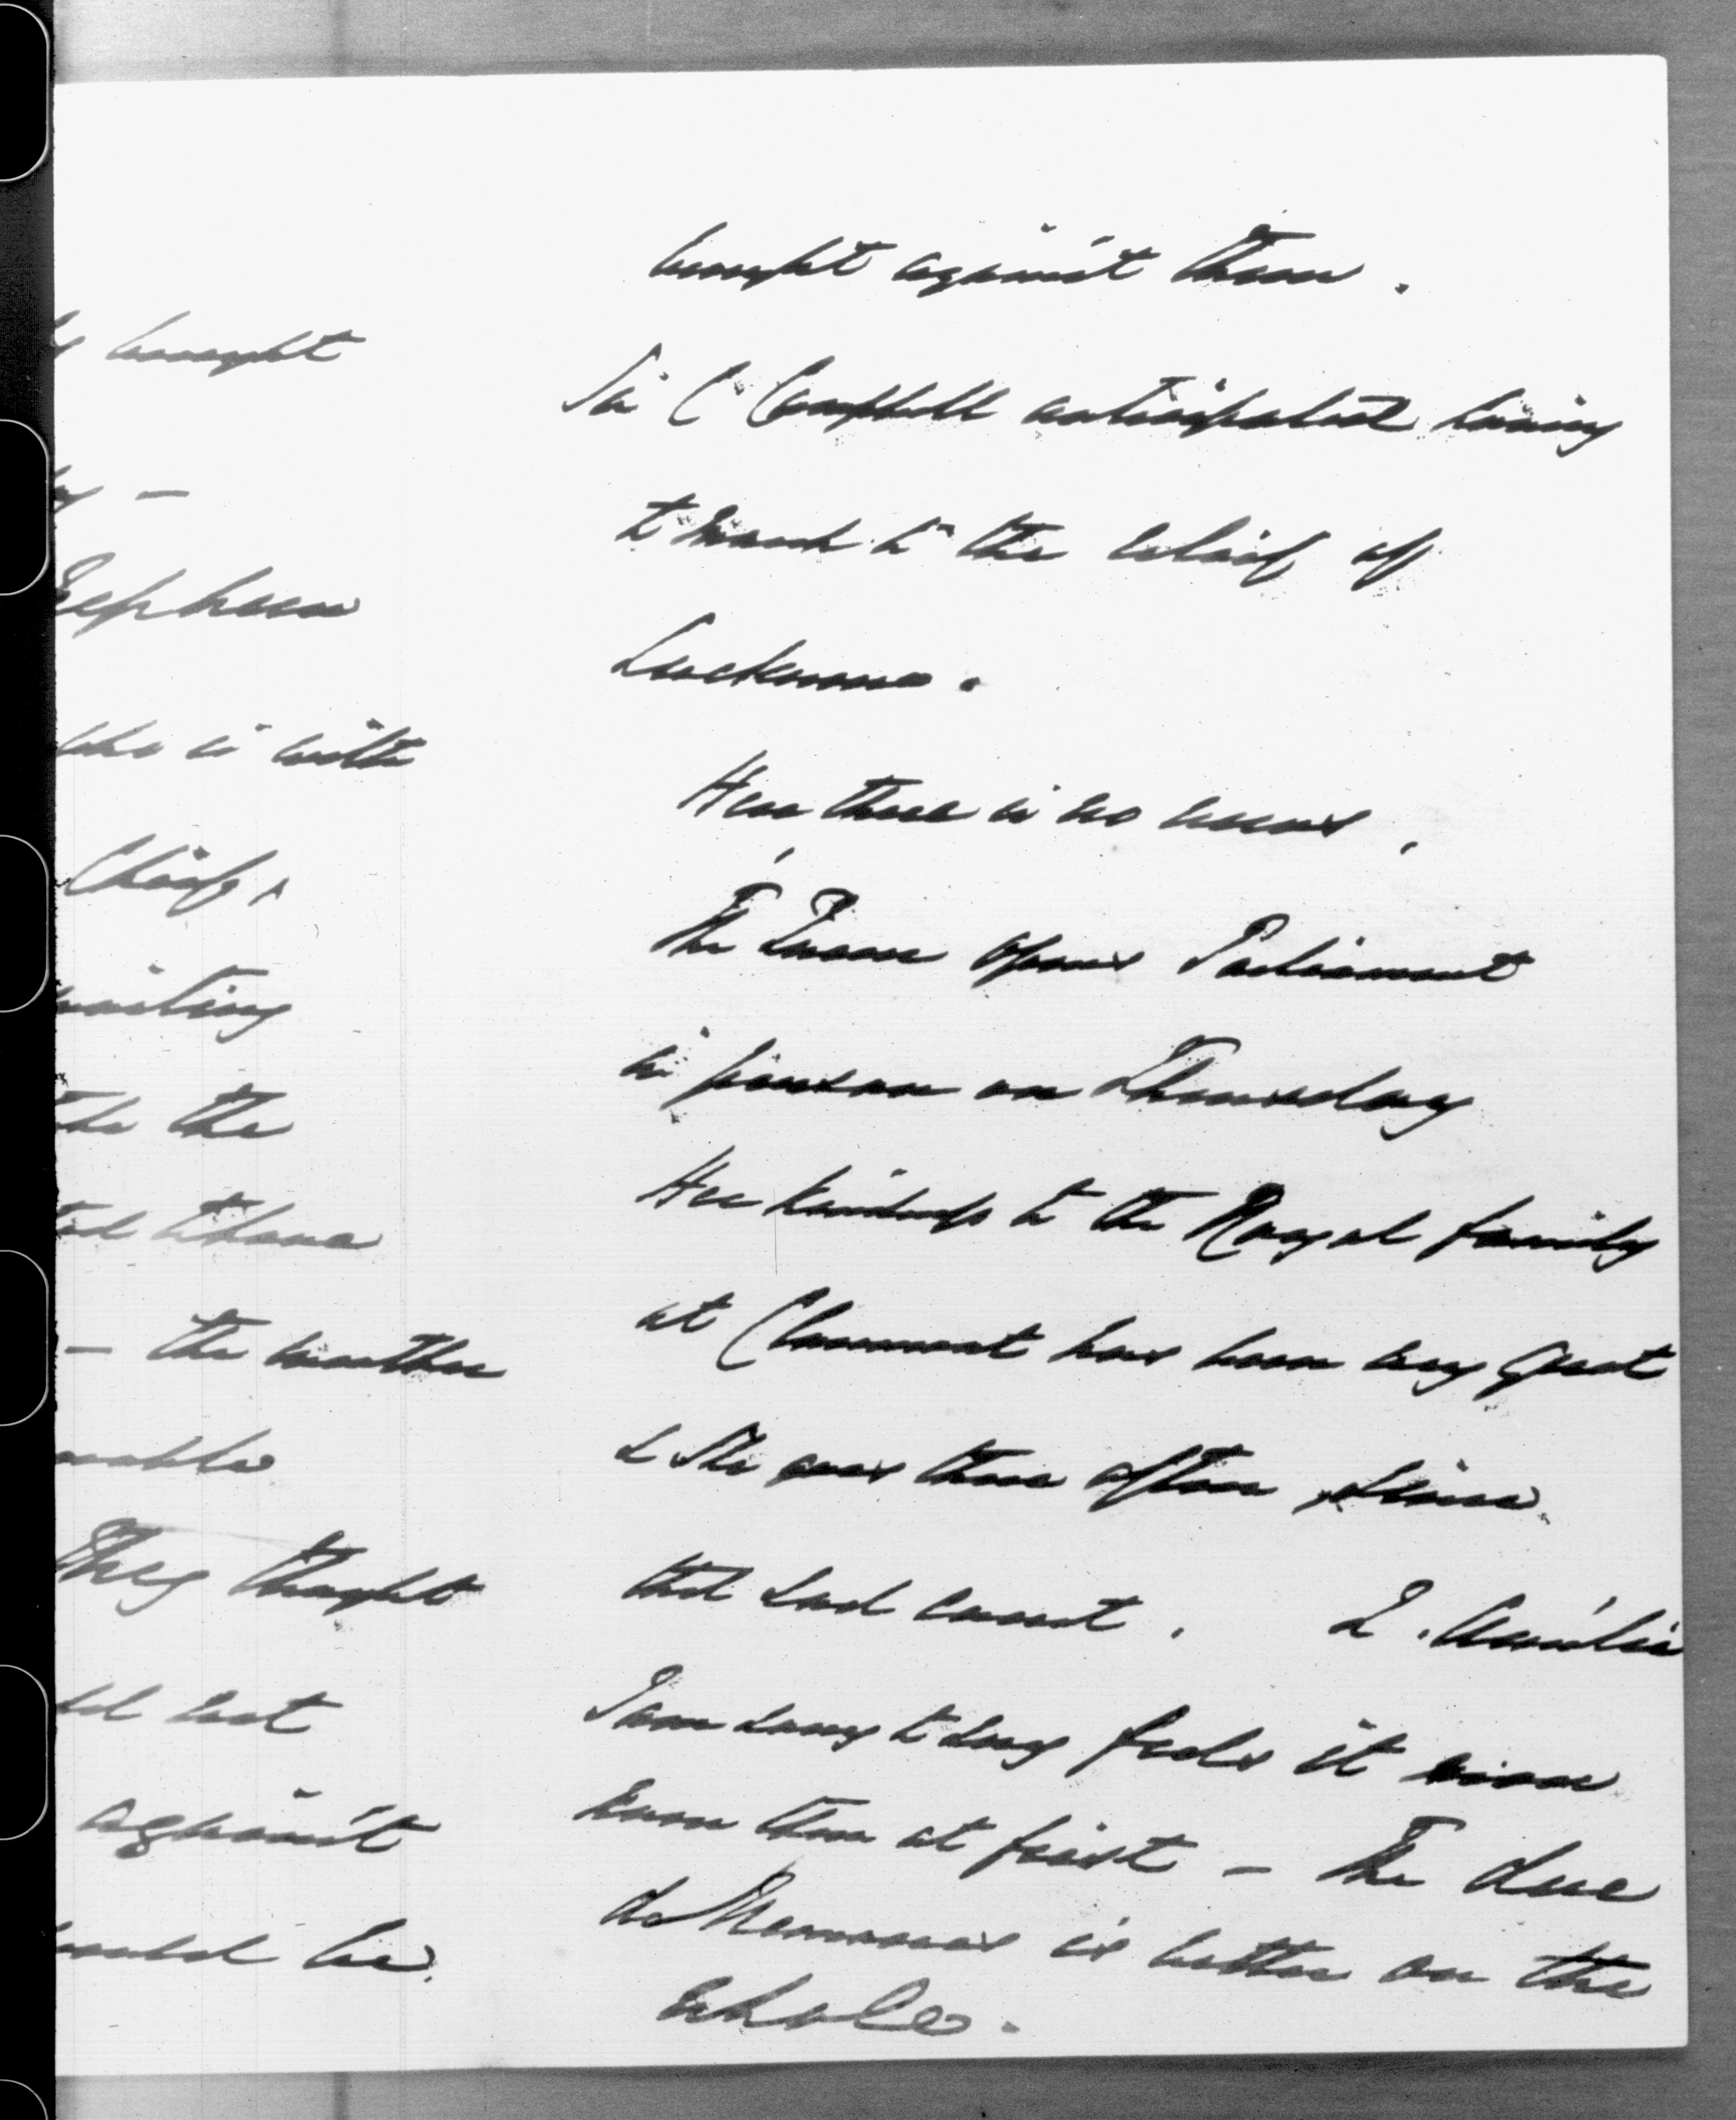 brought
Nephew
who is with
Chief,
waiting
the
- the weather
They thought
not
against
would be
brought against them.
Sir C Campbell anticipated having
to march to the relief of
Lucknow.
Here there is no news,
The Queen opens Parliament
in person on Thursday
Her kindness to the Royal family
at Claremont has been very great
& She was there often since
that sad event. Q. Amélie
from day to day feels it more
even than at first - The Duc
de Nemours is better on the
whole.